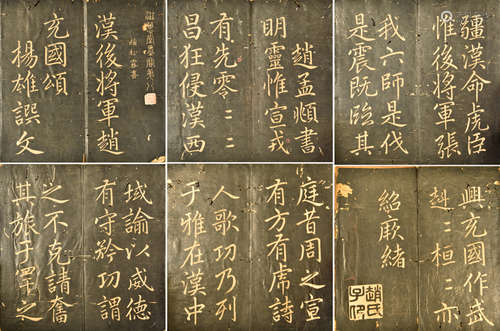 漢後將軍趙
充國頌
楊雄譔文
趙孟頫書
明靈惟宣戎
有先零二二
昌狂侵漢西
疆漢命虎臣
惟後將軍張
我六師是伐
是震既臨其
域諭以威德
有守矜功謂
之不克請奮
其旅于罕之
庭昔周之宣
有方有席詩
人歌功乃列
于雅在漢中
興充國作武
赳二桓二亦
紹厥緒
趙氏子印